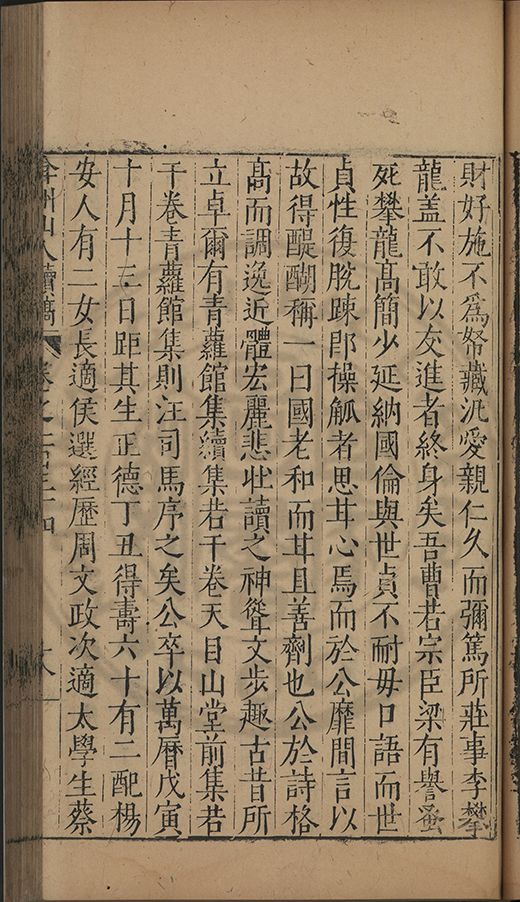 財好施不爲帑藏汎愛親仁久而彌篤所莊事李攀
龍盖不敢以友進者終身矣吾曹若宗臣梁有譽蚤
死攀龍髙簡少延納國倫與世貞不耐毋口語而世
貞性復脫踈即操觚者思甘心焉而於公靡間言以
故得醍醐稱一曰國老和而甘且善劑也公於詩格
髙而調逸近體宏麗悲壯讀之神聳文步趣古昔所
立卓爾有青蘿館集續集若干卷天目山堂前集若
干卷青蘿館集則汪司馬序之矣公卒以萬曆戊寅
十月十三日距其生正德丁丑得壽六十有二配楊
安人有二女長適侯選經歷周文政次適太學生蔡
州山人續稿 卷之一百三十四